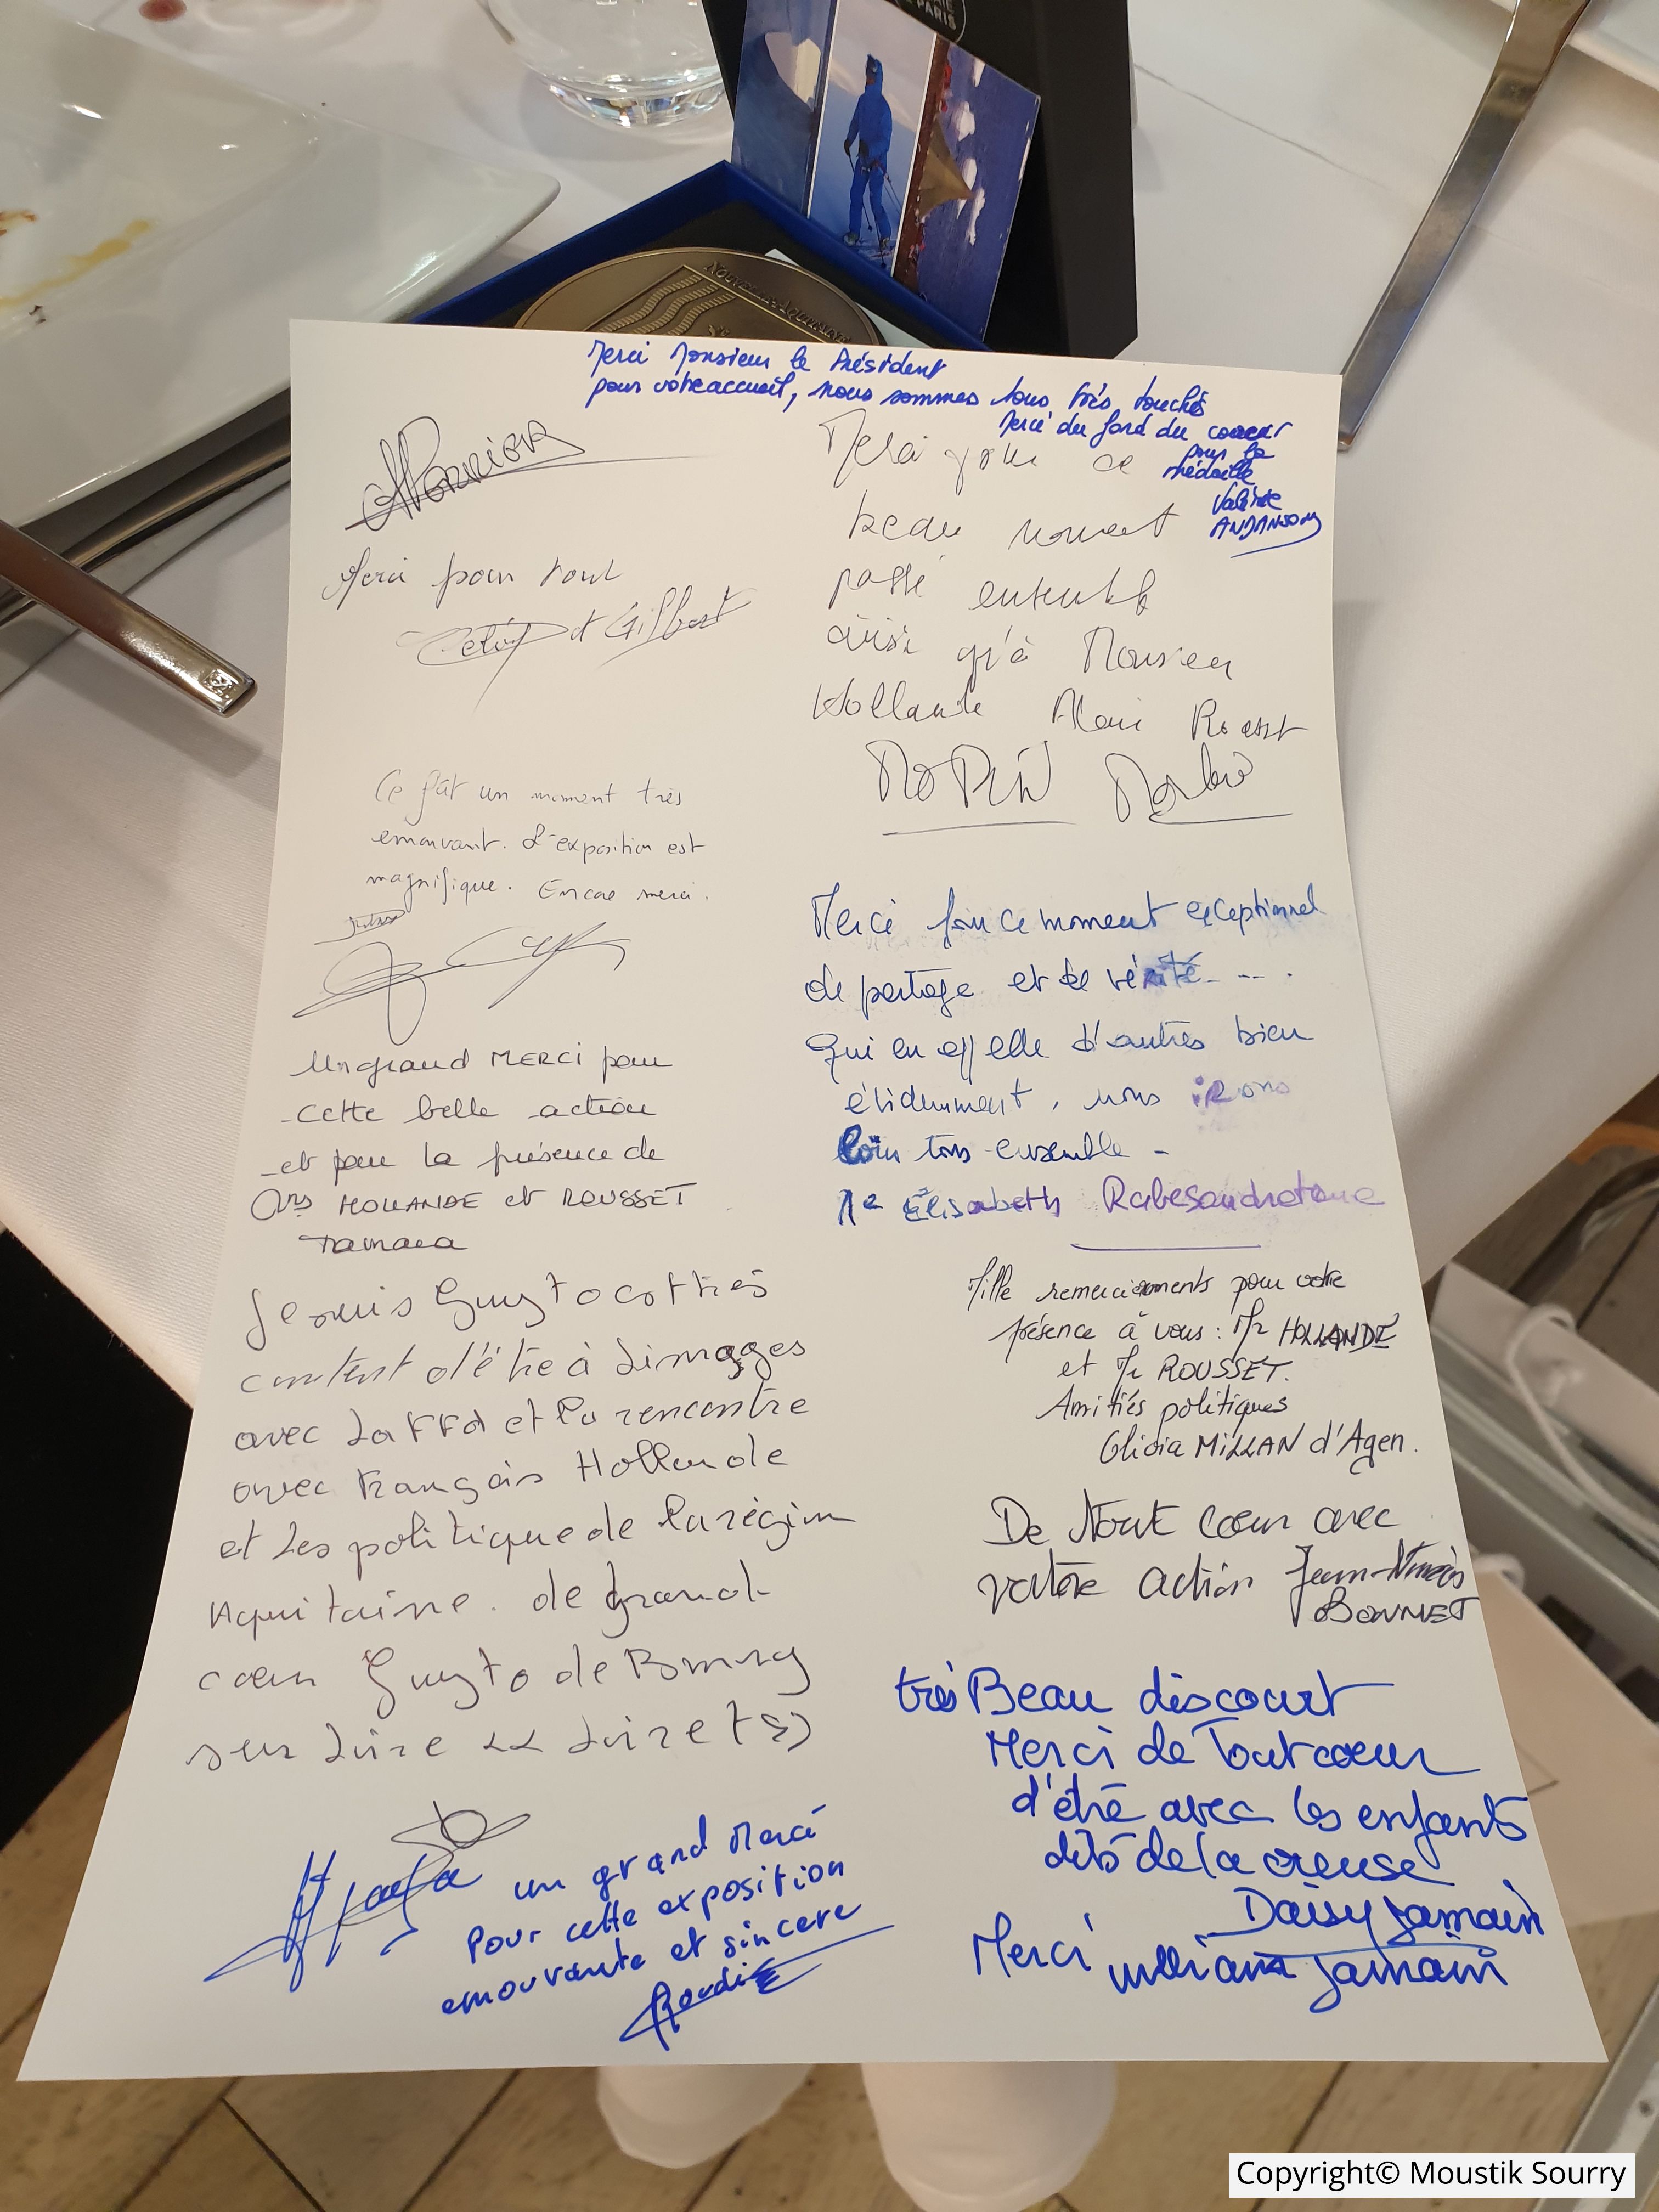 DE PARIS
NOUVELLE-AQUITAINE
Merci Monsieur le Président
pour votre accueil, nous sommes tous très touchés
Merci du fond du coeur
pour la
médaille
Valérie
ANDANSON
Merci pour tout
et Gilbert
Ce fût un moment très
emouvant. L'exposition est
magnifique. Encore merci.
Un grand MERCI pour
cette belle action
et pour la présence de
Mrs HOLLANDE et ROUSSET
Tamara
Je suis Guyto cottres
content d'étre à Limoges
avec La FFd et la rencontre
avec François Hollande
et Les politique de la région
Aquitaine. de grand
coeur Guyto de Bonny
sur Loire << Loiret >>
un grand Merci
Pour cette exposition
emouvante et sincere
Merci pour ce
beau moment
passé ensemble
ainsi qu'à Monsieur
Hollande Alain Rousset
Merci pour ce moment exceptionnel
de partage et de vérité - - - .
Qui en appelle d'autres bien
évidemment, nous irons
loin tous ensemble -
Élisabeth Rabesandratana
Mille remerciements pour votre
présence à vous : Mr HOLLANDE
et Mr ROUSSET.
Amitiés politiques
Clivia MILLAN d'Agen.
De Tout Coeur avec
votre action Jean-
BONNET
très Beau discourt
Merci de Tout coeur
d'étre avec les enfants
dits de la creuse
Daisy Jamain
Merci William Jamain
Copyright© Moustik Sourry